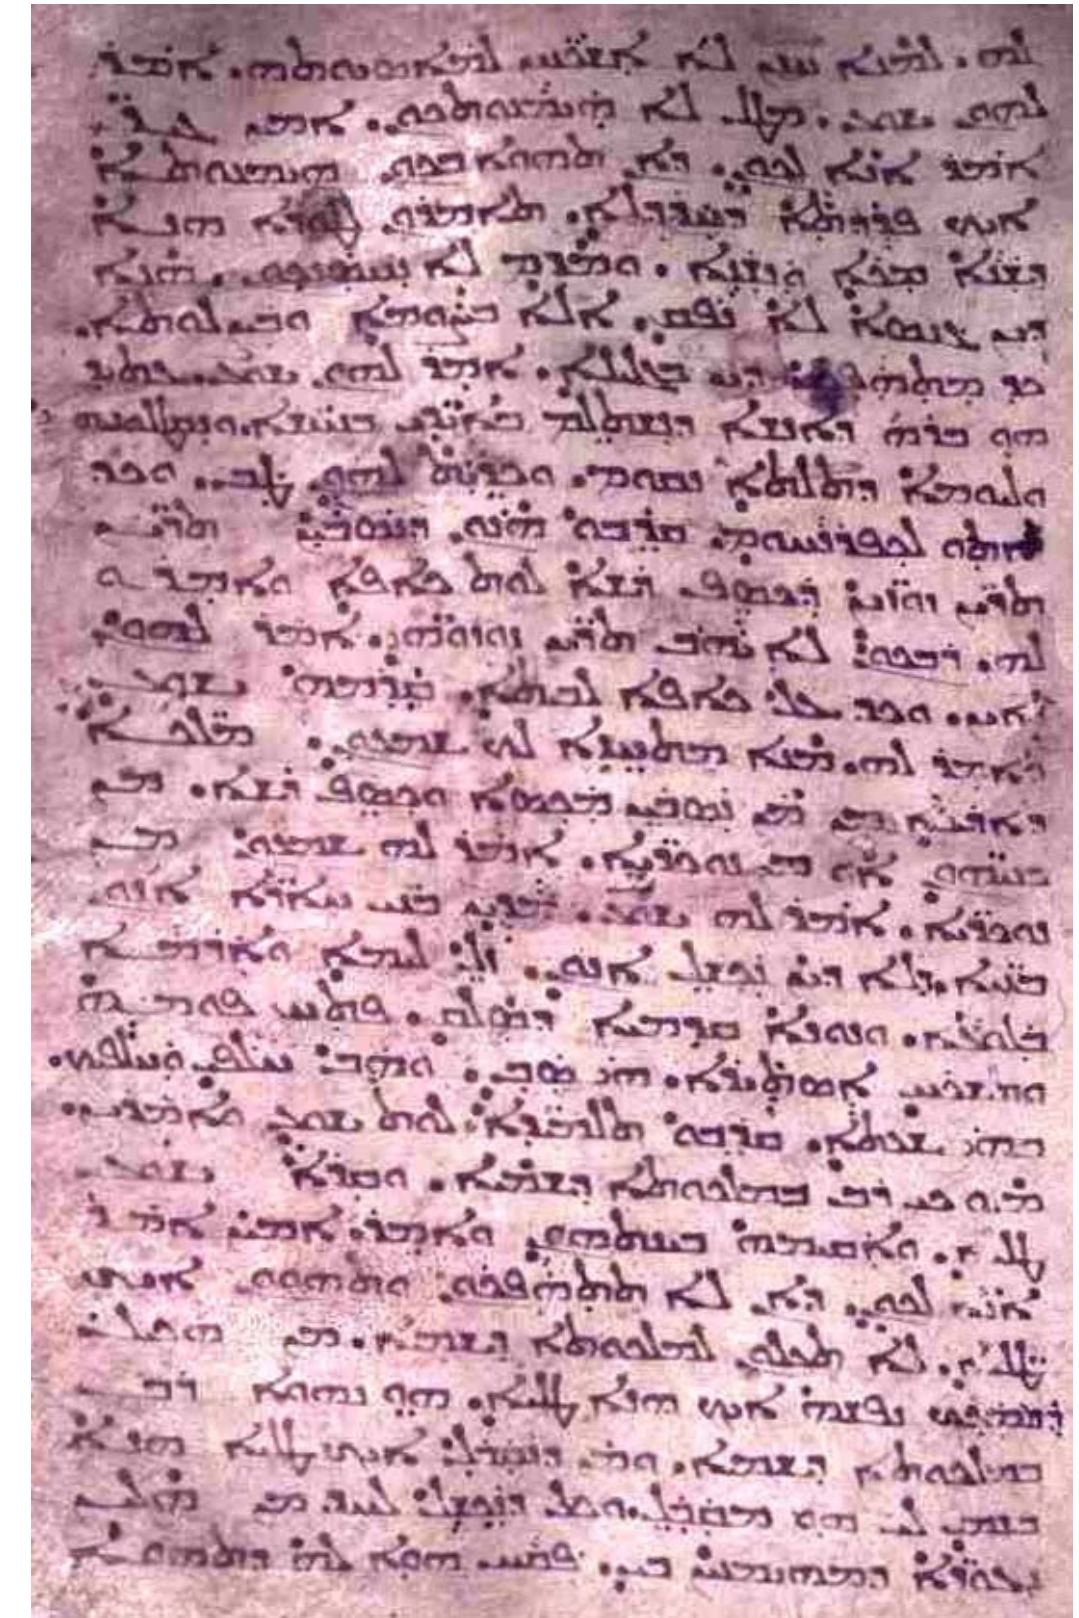 ܠܗ. ܠܡܢܐ ܚܢܢ ܠܐ ܐܫܟܚܢ ܠܡܐܣܝܘܬܗ. ܐܡܪ
ܠܗܘܢ ܝܫܘܥ. ܡܛܠ ܠܐ ܗܝܡܢܘܬܟܘܢ. ܐܡܝܢ ܓܝܪ
ܐܡܪ ܐܢܐ ܠܟܘܢ. ܕܐܢ ܬܗܘܐ ܒܟܘܢ ܗܝܡܢܘܬܐ
ܐܝܟ ܦܪܕܬܐ ܕܚܪܕܠܐ. ܬܐܡܪܘܢ ܠܛܘܪܐ ܗܢܐ
ܕܫܢܐ ܡܟܐ ܘܢܫܢܐ. ܘܡܕܡ ܠܐ ܢܚܣܢܟܘܢ. ܗܢܐ
ܕܝܢ ܓܢܣܐ ܠܐ ܢܦܩ. ܐܠܐ ܒܨܘܡܐ ܘܒܨܠܘܬܐ.
ܟܕ ܡܬܗܦܟܝܢ ܕܝܢ ܒܓܠܝܠܐ. ܐܡܪ ܠܗܘܢ ܝܫܘܥ. ܥܬܝܕ
ܗܘ ܒܪܗ ܕܐܢܫܐ ܕܢܫܬܠܡ ܒܐܝܕܝ ܒܢܝܢܫܐ. ܘܢܩܛܠܘܢܝܗܝ
ܘܠܝܘܡܐ ܕܬܠܬܐ ܢܩܘܡ. ܘܟܪܝܬ ܠܗܘܢ ܛܒ. ܘܟܕ
ܐܬܘ ܠܟܦܪܢܚܘܡ. ܩܪܒܘ ܗܢܘܢ ܕܢܣܒܝܢ ܬܪܝܢ
ܬܪܝܢ ܙܘܙܝܢ ܕܟܣܦ ܪܫܐ ܠܘܬ ܟܐܦܐ ܘܐܡܪܘ
ܠܗ. ܪܒܟܘܢ ܠܐ ܝܗܒ ܬܪܝܢ ܙܘܙܘܗܝ. ܐܡܪ ܠܗܘܢ
ܐܝܢ. ܘܟܕ ܥܠ ܟܐܦܐ ܠܒܝܬܐ. ܩܕܡܗ ܝܫܘܥ
ܘܐܡܪ ܠܗ. ܡܢܐ ܡܬܚܙܐ ܠܟ ܫܡܥܘܢ. ܡܠܟܐ
ܕܐܪܥܐ ܡܢ ܡܢ ܢܣܒܝܢ ܡܟܣܐ ܘܟܣܦ ܪܫܐ. ܡܢ
ܒܢܝܗܘܢ ܐܘ ܡܢ ܢܘܟܪܝܐ. ܐܡܪ ܠܗ ܫܡܥܘܢ ܡܢ
ܢܘܟܪܝܐ. ܐܡܪ ܠܗ ܝܫܘܥ. ܡܕܝܢ ܒܢܝ ܚܐܪܐ ܐܢܘܢ
ܒܢܝܐ. ܕܠܐ ܕܝܢ ܢܟܫܠ ܐܢܘܢ. ܙܠ ܠܝܡܐ ܘܐܪܡܐ
ܒܠܘܥܐ. ܘܢܘܢܐ ܩܕܡܝܐ ܕܣܠܩ. ܦܬܚ ܦܘܡܗ
ܘܬܫܟܚ ܐܣܬܪܐ. ܗܝ ܣܒ. ܘܗܒ ܚܠܦܝ ܘܚܠܦܝܟ.
ܒܗܝ ܫܥܬܐ. ܩܪܒܘ ܬܠܡܝܕܐ ܠܘܬ ܝܫܘܥ ܘܐܡܪܝܢ.
ܡܢܘ ܟܝ ܪܒ ܒܡܠܟܘܬܐ ܕܫܡܝܐ. ܘܩܪܐ ܝܫܘܥ
ܛܠܝܐ. ܘܐܩܝܡܗ ܒܝܢܬܗܘܢ ܘܐܡܪ. ܐܡܝܢ ܐܡܪ
ܐܢܐ ܠܟܘܢ. ܕܐܢ ܠܐ ܬܬܗܦܟܘܢ ܘܬܗܘܘܢ ܐܝܟ
ܛܠܝܐ. ܠܐ ܬܥܠܘܢ ܠܡܠܟܘܬܐ ܕܫܡܝܐ. ܡܢ ܗܟܝܠ
ܕܡܡܟܟ ܢܦܫܗ ܐܝܟ ܗܢܐ ܛܠܝܐ. ܗܘ ܢܗܘܐ ܪܒ
ܒܡܠܟܘܬܐ ܕܫܡܝܐ. ܘܡܢ ܕܢܩܒܠ ܐܝܟ ܛܠܝܐ ܗܢܐ
ܒܫܡܝ ܠܝ ܗܘ ܡܩܒܠ. ܘܟܠ ܕܢܟܫܠ ܠܚܕ ܡܢ ܗܠܝܢ
ܙܥܘܪܐ ܕܡܗܝܡܢܝܢ ܒܝ. ܦܩܚ ܗܘܐ ܠܗ ܕܬܗܘܐ